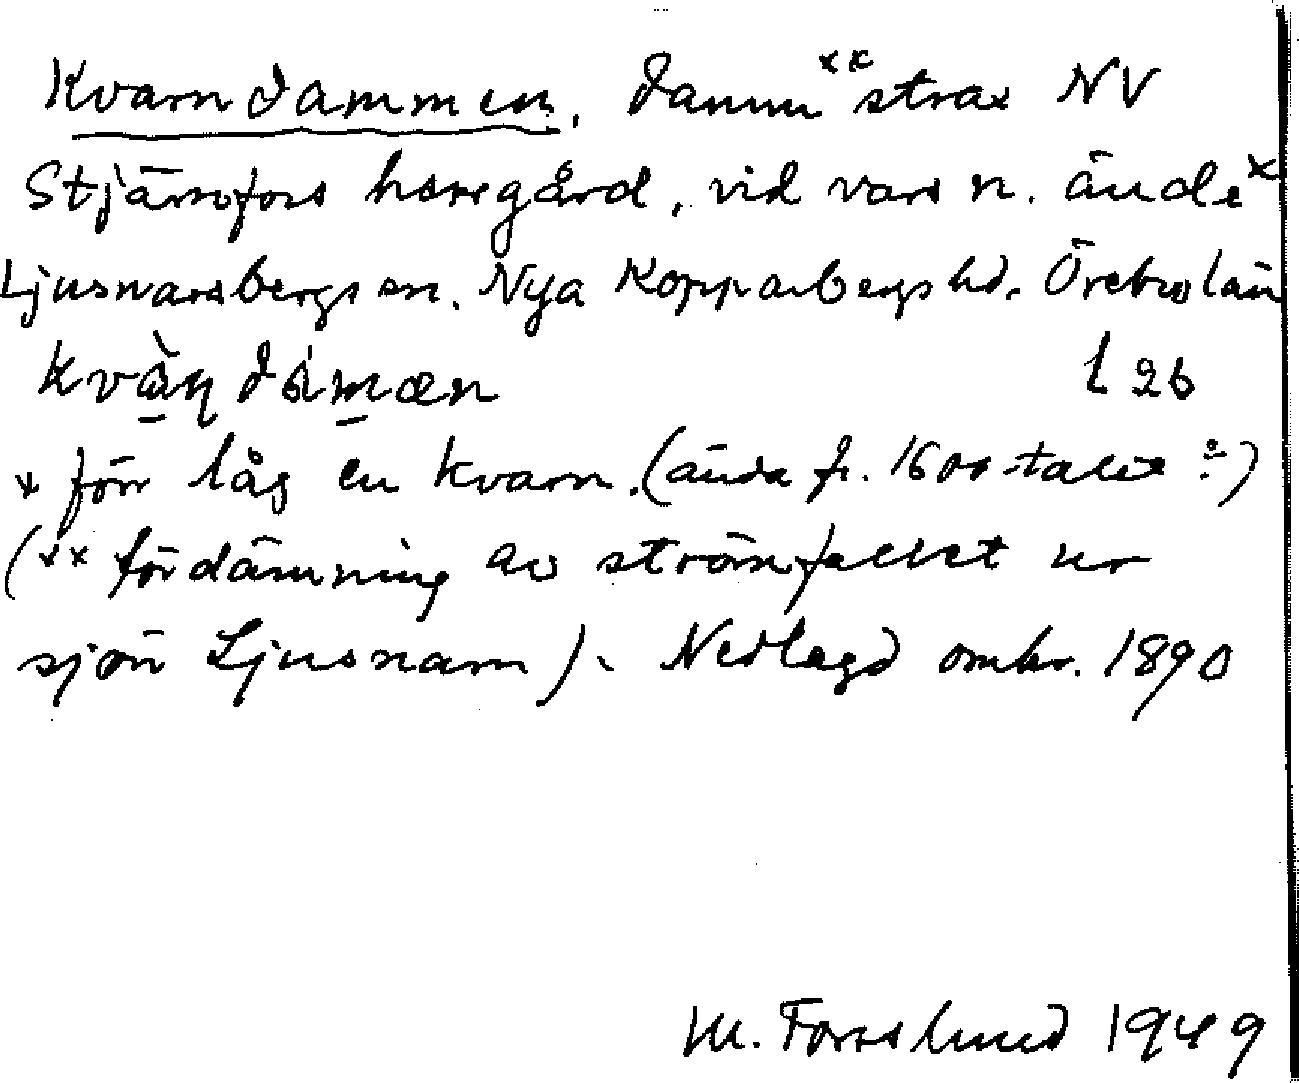 Kvarndammen, Damm ×× strax NV
Stjärnfors herregård, vid vars n. ände ×
Ljusnarsbergs sn. Nya Kopparbergs hd. Örebro län
kvàn dámæn l 26
× förr låg en kvarn. (ända fr. 1600-talet ?)
(×× fördämning av strömfallet ur
sjön Ljusnarn). Nedlagd omkr. 1890
M. Forsslund 1949